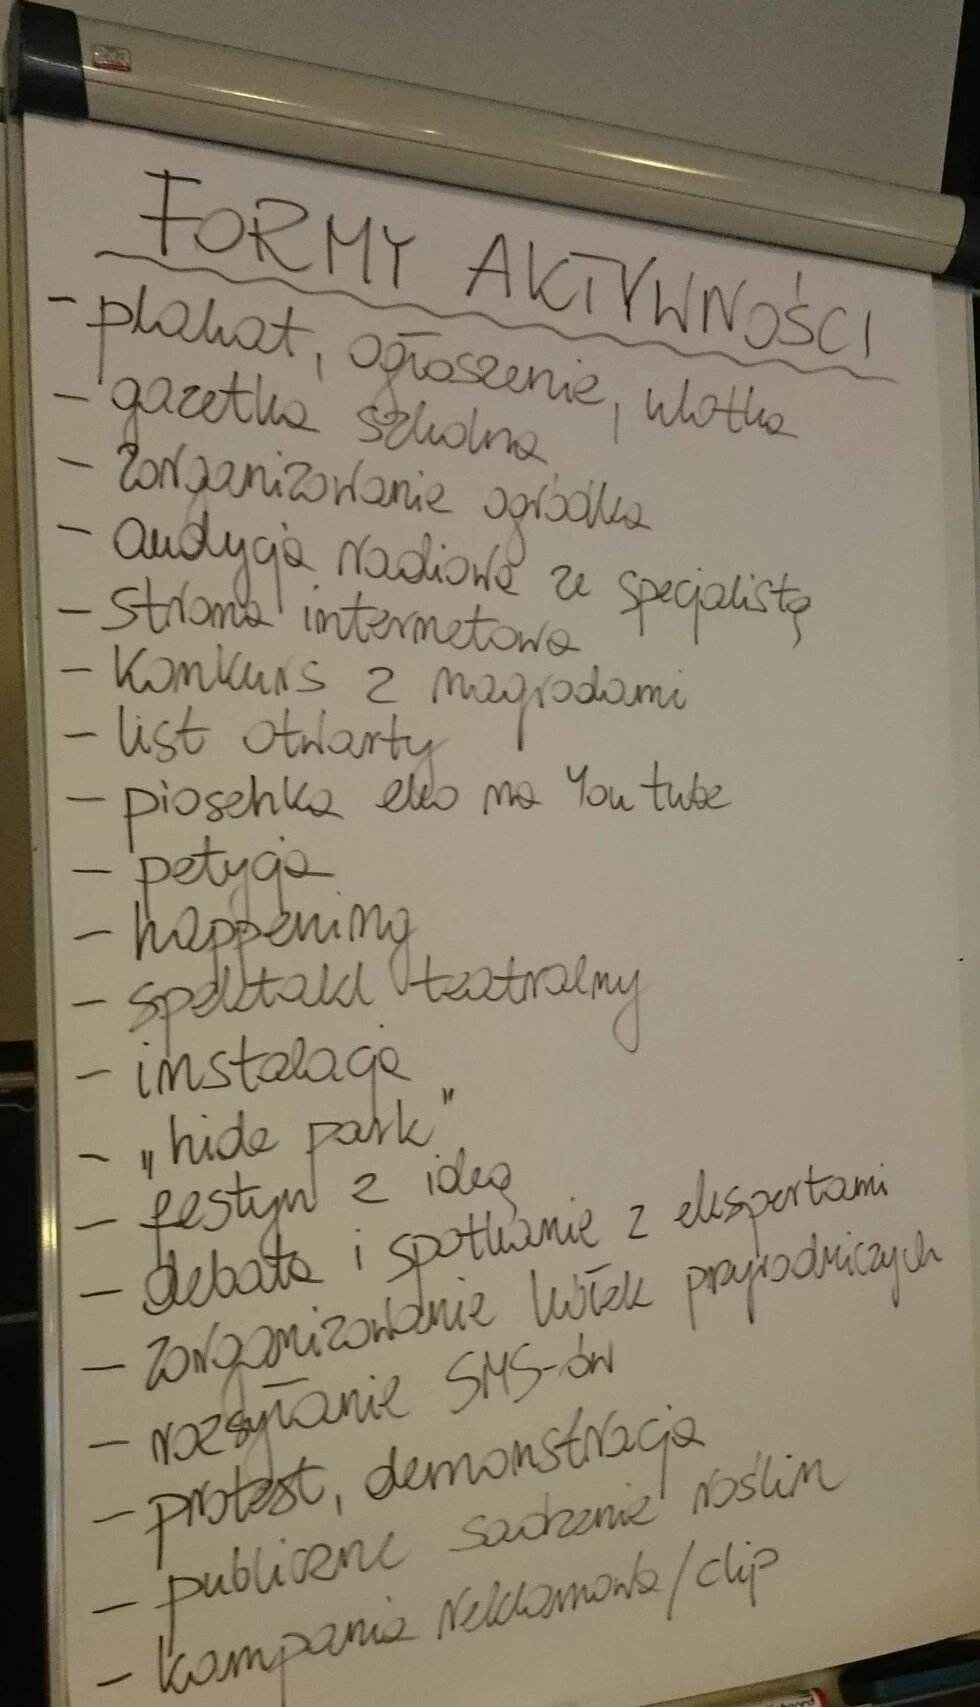 FORMY AKTYWNOŚCI
- plakat, ogłoszenie, ulotka
- gazetka szkolna
- zorganizowanie ogródka
- audycja radiowa ze specjalistą
- strona internetowa
- konkurs z nagrodami
- list otwarty
- piosenka eko na You tube
- petycja
- happening
- spektakl teatralny
- instalacja
- „hide park"
- festyn z ideą
- debata i spotkanie z ekspertami
- zorganizowanie kółek przyrodniczych
- rozsyłanie SMS-ów
- protest, demonstracja
- publiczne sadzenie roślin
- kampania reklamowa/clip